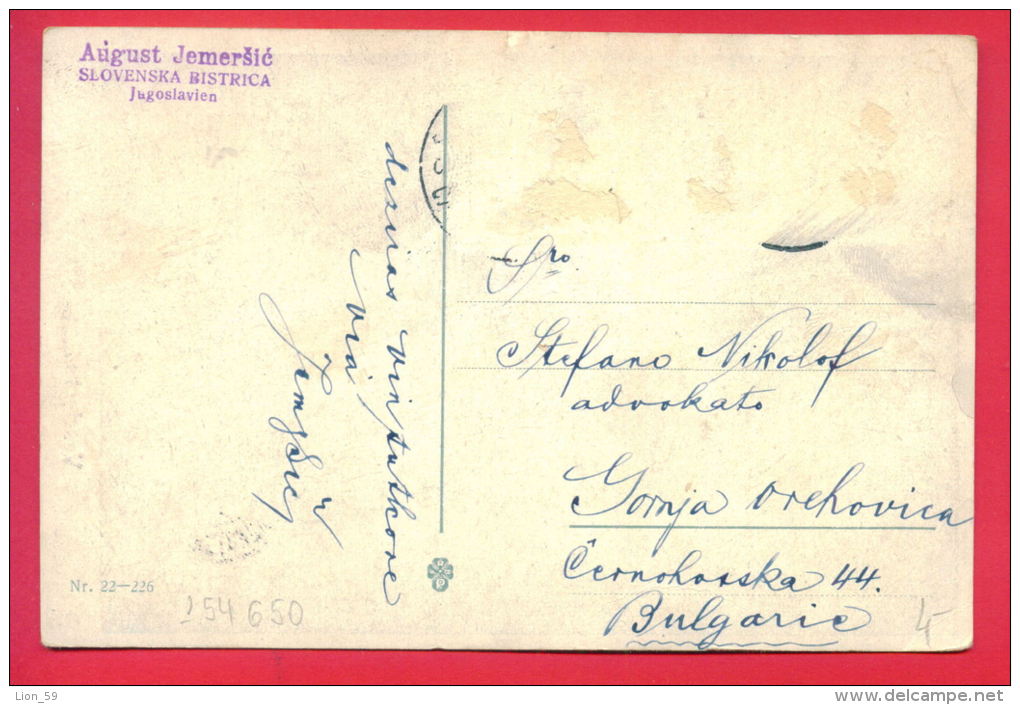 August Jemeršić
SLOVENSKA BISTRICA
Jugoslavien
deziras
via
Jemeršić
Sro
Stefano Nikolof
advokato
Gornja Orehovica
Černohorska 44.
Bulgarie
Nr. 22—226
254650
4
Lion_59
www.delcampe.net